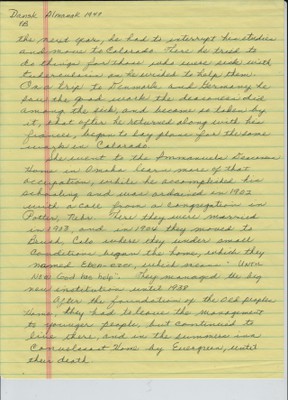 Dansk Almanak 1949
68
the next year, he had to interrupt his studies
and move to Colorado. Here he tried to
do things for those who were sick with
tuberculosis as he wished to help them.
On a trip to Denmark and Germany he
saw the good work the deaconess did
among the sick, and became so taken by
it, that after he returned along with his
fiancee, began to lay plans for the same
work in Colorado.
She went to the Immanuels Deaconess
Home in Omaha learn more of that
occupation, while he accomplished his
schooling and was ordained in 1902
with a call from a congregation in
Potter, Nebr. Here they were married
in 1903, and in 1904 they moved to
Brush, Colo where they under small
conditions began the home, which they
named Eben-ezer, which means "Hither
has God has help". They managed the big
new institution until 1938
After the foundation of the Old peoples
Home, they had to leave the management
to younger people, but continued to
live there, and in the summers in a
Convalescent Home by Evergreen, until
their death